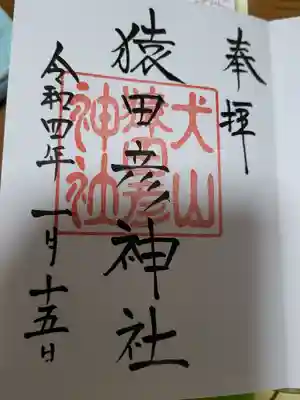 奉拝
猿田彦神社
犬山
猿田彦
神社
令和四年一月十五日